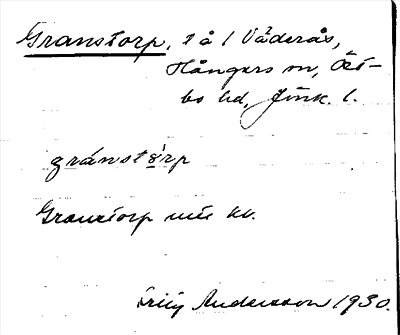 Granstorp, t å 1 Väderås,
Hångers sn, Öst-
bo hd, Jönk. l.
gránstòrp
Granstorp utt. kv.
Friz Andersson 1930.